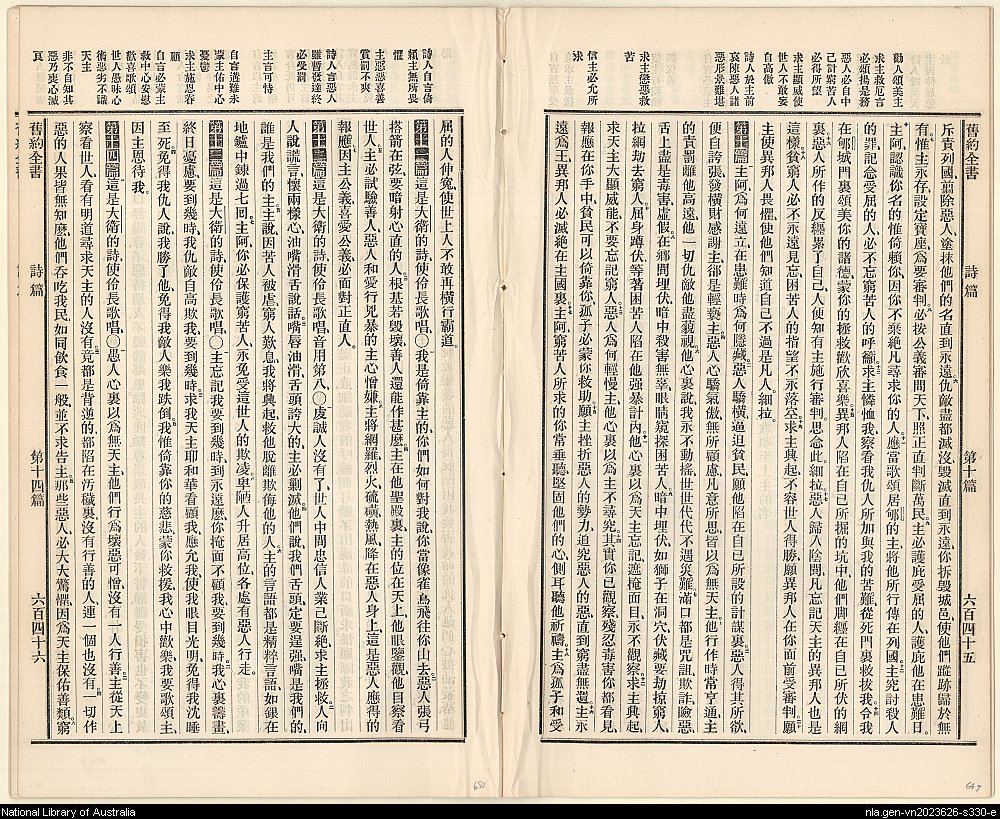 勸人頌美主
求主救厄言
必頌揚是務
惡人必自中
己計窮苦人
必得所望
求主顯威使
世人不敢妄
自高傲
詩人於主前
哀陳惡人諸
惡形景難堪
求主懲惡救
苦
信主必允所
求
舊約全書
詩篇
第十篇
六百四十五
斥責列國、翦除惡人、塗抹他們的名、直到永遠。仇敵盡都滅沒、毀滅直到永遠、你拆毀城邑、使他們蹤跡歸於無
有。惟主永存、設定寶座、爲要審判。必按公義審問天下、照正直判斷萬民。主必護庇受屈的人、護庇他在患難日。
主阿、認識你名的、惟倚賴你、因你不棄絕凡尋求你的人。應當歌頌居郇的主、將他所行傳在列國。主究討殺人
的罪、記念受屈的人、必不忘窮苦人的呼籲。求主憐恤我、察看我仇人所加與我的苦難、從死門裏救拔我。令我
在郇城門裏、頌美你的諸德、蒙你的拯救、歡欣喜樂。異邦人陷在自己所掘的坑中、他們脚纏在自己所伏的網
裏。惡人所作的、反纏累了自己、人便知有主施行審判、思念此細拉。惡人歸入陰間、凡忘記天主的異邦人也是
這樣。貧窮人必不永遠見忘、困苦人的指望不永落空。求主興起、不容世人得勝、願異邦人在你面前受審判。願
主使異邦人畏懼、使他們知道自己不過是凡人細拉。
第十篇 主阿、爲何遠立、在患難時、爲何隱藏。惡人驕橫、逼迫貧民、願他陷在自己所設的計謀裏。惡人得其所欲、
便自誇張、發橫財感謝主、卻是輕褻主。惡人心驕氣傲、無所顧慮、凡意所思、皆以爲無天主。他行作時常亨通、主
的責罰離他高遠、他一切仇敵、他盡藐視。他心裏說、我永不動搖、世世代代不遇災難。滿口都是咒詛、欺詐、險惡、
舌上盡是毒害虛假。在鄉間埋伏、暗中殺害無辜、眼睛窺探困苦人。暗中埋伏、如獅子在洞穴、伏藏要劫掠窮人、
拉網劫去窮人。屈身蹲伏、等著困苦人陷在他强暴計內。他心裏以爲天主忘記、遮掩面目、永不觀察。求主興起、
求天主大顯威能、不要忘記窮人。惡人爲何輕慢主、他心裏以爲主不尋究。其實你已觀察、殘忍毒害、你都看見、
報應在你手中、貧民可以倚靠你、孤子必蒙你救助。願主挫折惡人的勢力、追究惡人的惡、直到窮盡無遺。主永
遠爲王、異邦人必滅絕在主國裏。主阿、窮苦人所求的、你常垂聽、堅固他們的心、側耳聽他祈禱。主爲孤子和受
詩人自言倚
賴主無所畏
懼
主惡惡喜善
賞罰不爽
詩人言惡人
雖暫發達終
必受罰
主言可恃
自言遇難永
蒙主佑中心
憂鬱
求主施恩眷
顧
自言必蒙主
救中心安慰
歡喜歌頌
世人愚昧心
術惡劣不識
天主
非不自知其
惡乃喪心滅
良
屈的人伸寃、使世上人不敢再橫行霸道。
第十一篇 這是大衛的詩、使伶長歌唱。○我是倚靠主的、你們如何對我說、你當像雀鳥飛往你山去。惡人張弓
搭箭在弦、要暗射心直的人。根基若毀壞、善人還能作甚麽。主在他聖殿裏、主的位在天上、他眼鑒觀、他目察看
世人。主必試驗善人、惡人和愛行兇暴的主心憎嫌。主將網羅、烈火、硫磺、熱風、降在惡人身上、這是惡人應得的
報應。因主公義、喜愛公義、必面對正直人。
第十二篇 這是大衛的詩、使伶長歌唱、音用第八。○虔誠人沒有了、世人中間忠信人業已斷絶、求主拯救。人向
人說謊言、懷兩樣心、油嘴滑舌說話。嘴唇油滑、舌頭誇大的、主必剿滅。他們說、我們舌頭定要逞强、嘴是我們的、
誰是我們的主。主說、因苦人被虐、窮人歎息、我將興起、救他脫離欺侮他的人。主的言語都是精粹言語、如銀在
地鑪中鍊過七回。主阿、你必保護窮苦人、永免受這世人的欺凌。卑陋人升居高位、各處有惡人行走。
第十三篇 這是大衛的詩、使伶長歌唱。○主忘記我要到幾時、到永遠麽、你掩面不顧我、要到幾時。我心裏籌畫、
終日憂慮、要到幾時、我仇敵自高欺我、要到幾時。求我天主耶和華看顧我、應允我、使我眼目光明、免得我沈睡
至死。免得我仇人說、我勝了他、免得我敵人樂我跌倒。我惟倚靠你的慈悲、蒙你救援、我心中歡樂。我要歌頌主、
因主恩待我。
第十四篇 這是大衛的詩、使伶長歌唱。○愚人心裏以爲無天主、他們行爲壞惡可憎、沒有一人行善。主從天上
察看世人、看有明道尋求天主的人沒有。竟都是背逆的、都陷在汚穢裏、沒有行善的人、連一個也沒有。一切作
惡的人、果皆無知麽、他們吞吃我民、如同飲食一般、並不求告主。那些惡人必大大驚懼、因爲天主保佑善類。窮
舊約全書
詩篇
第十四篇
六百四十六
650
649
National Library of Australia
nla.gen-vn2023626-s330-e